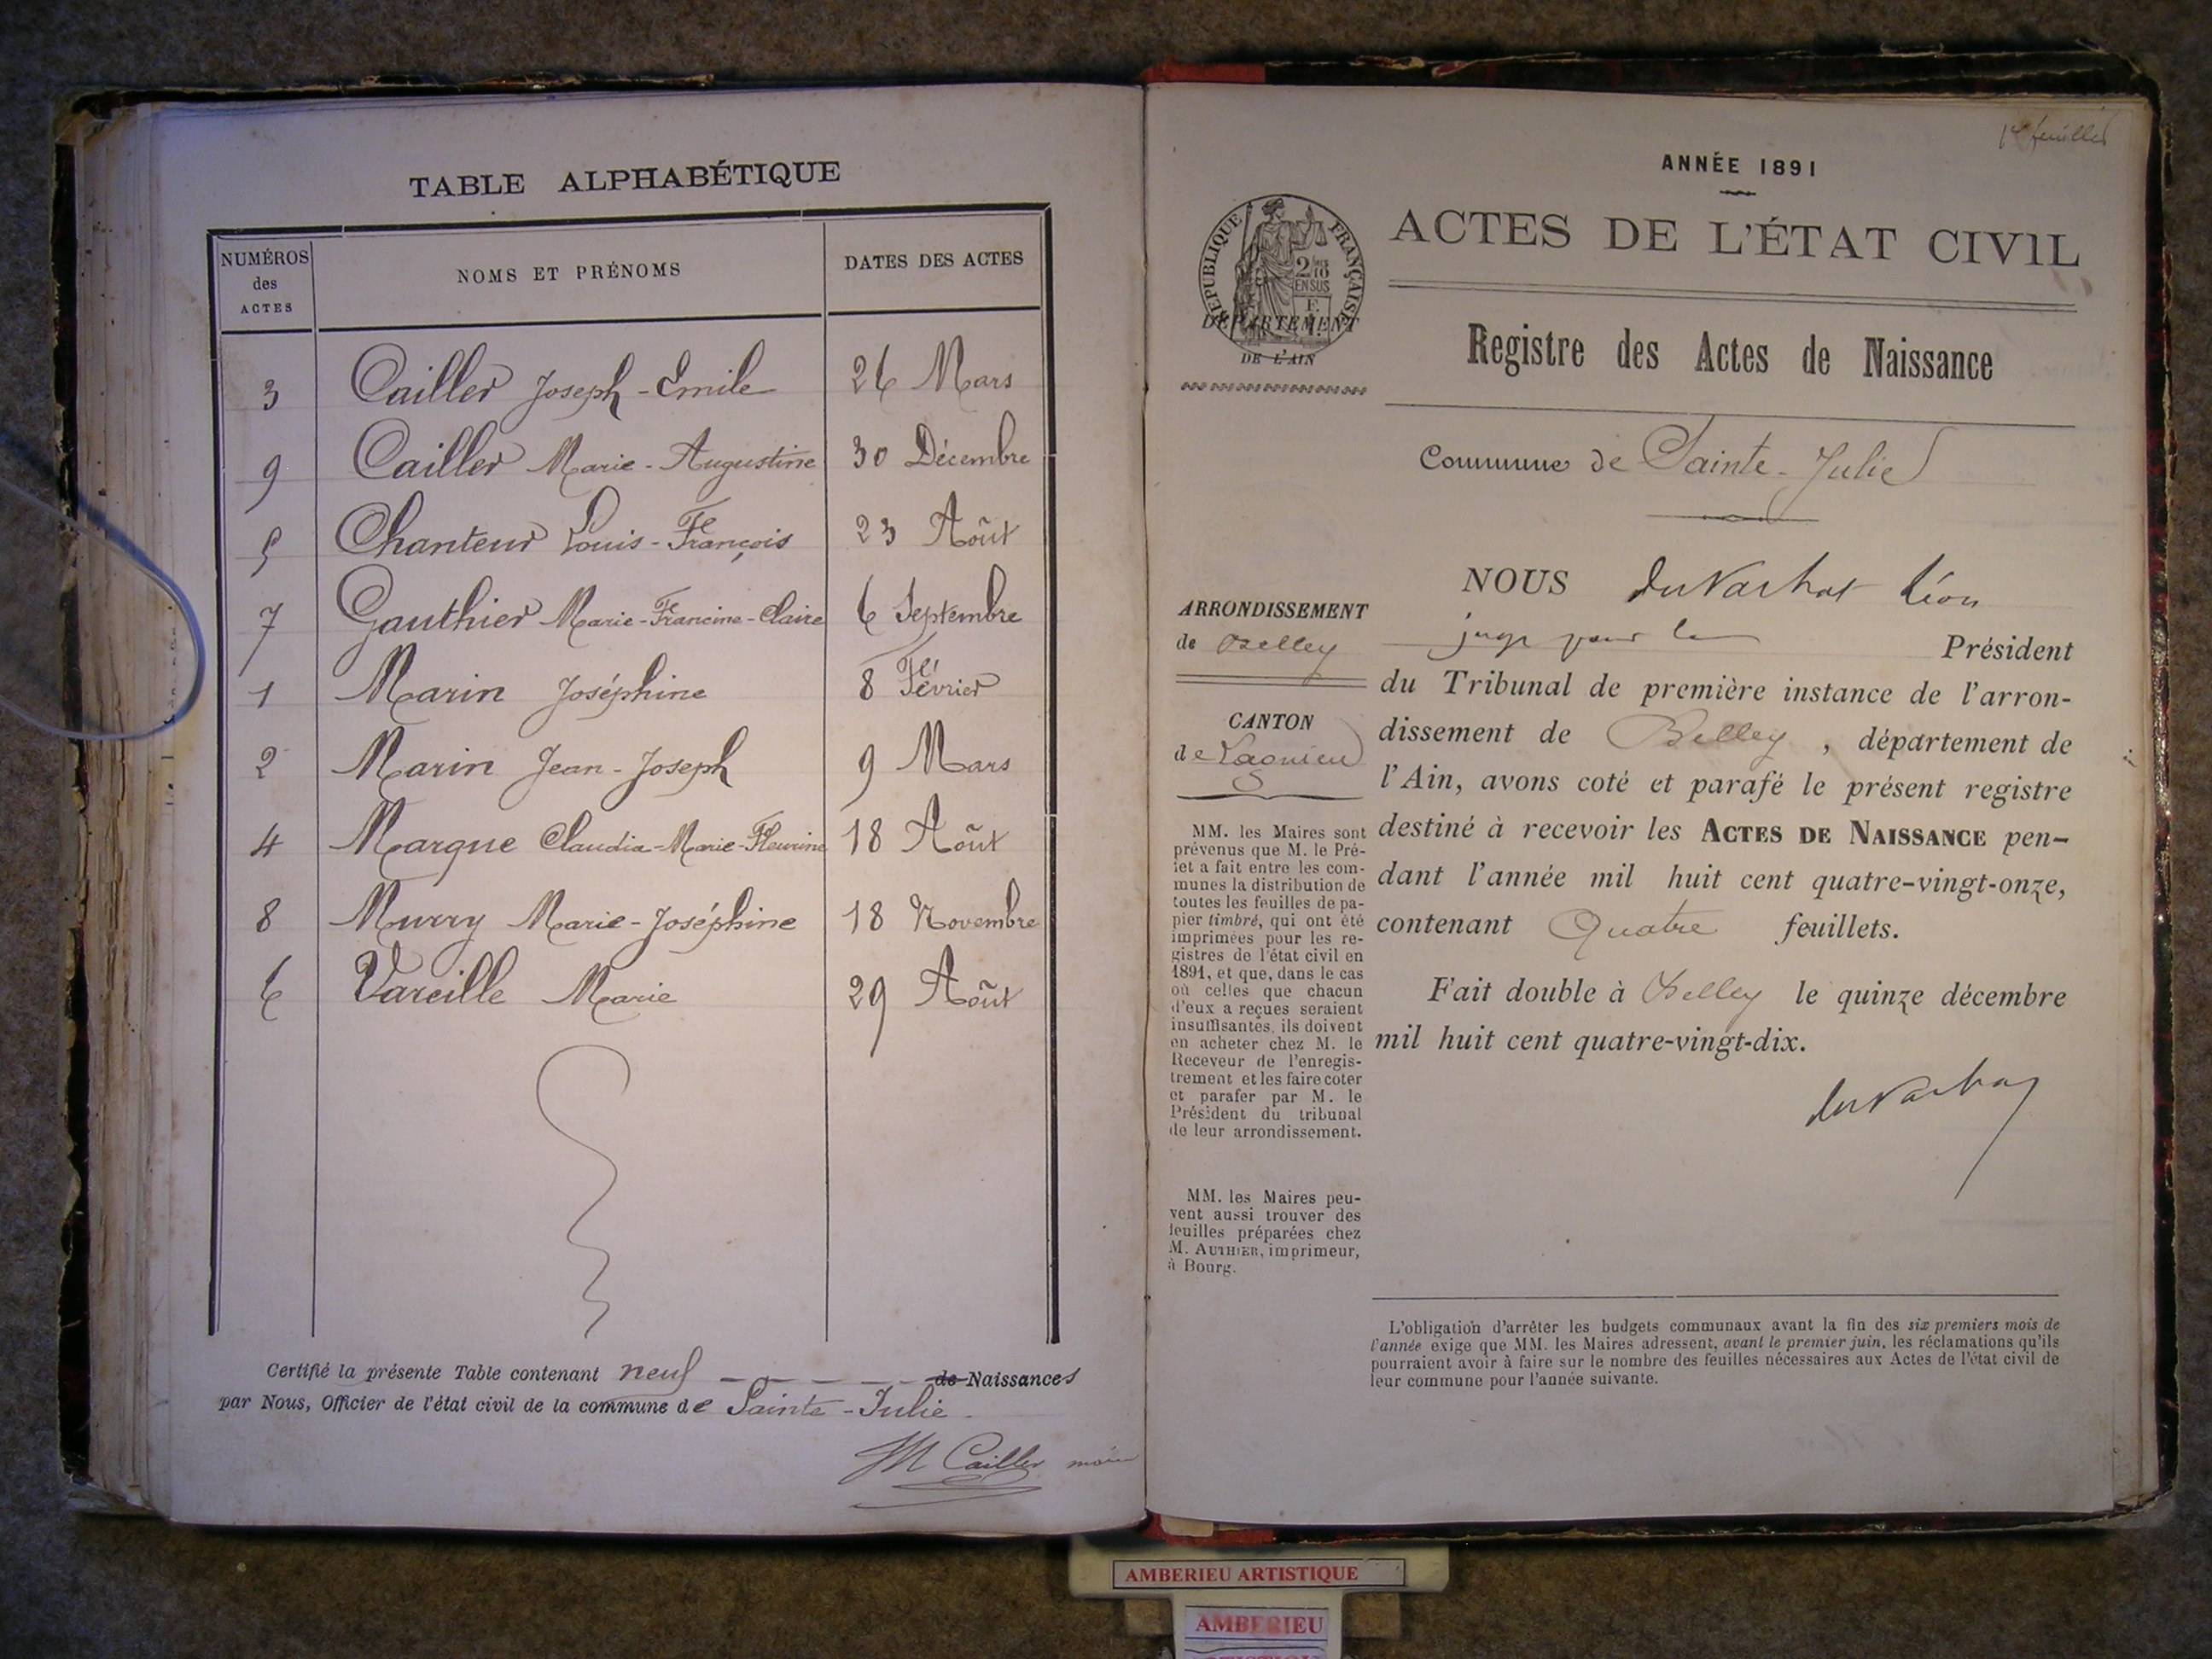 TABLE ALPHABÉTIQUE
NUMÉROS des ACTES NOMS ET PRÉNOMS DATES DES ACTES
3 Cailler Joseph-Emile 26 Mars
9 Cailler Marie-Augustine 30 Décembre
5 Chanteur Louis-François 23 Août
7 Gauthier Marie-Francine-Claire 6 Septembre
1 Marin Joséphine 8 Février
2 Marin Jean-Joseph 9 Mars
4 Margue Claudia-Marie-Fleurine 18 Août
8 Murry Marie-Joséphine 18 Novembre
6 Vareille Marie 29 Août
Certifié la présente Table contenant neuf de Naissances
par Nous, Officier de l'état civil de la commune de Sainte-Julie.
JM Cailler maire
feuillet
ANNÉE 1891
ACTES DE L'ÉTAT CIVIL
RÉPUBLIQUE FRANÇAISE
2/10 EN SUS
DÉPARTEMENT
DE L'AIN
Registre des Actes de Naissance
Commune de Sainte-Julie
ARRONDISSEMENT
de Belley
CANTON
de Lagnieu
MM. les Maires sont
prévenus que M. le Pré-
fet a fait entre les com-
munes la distribution de
toutes les feuilles de pa-
pier timbré, qui ont été
imprimées pour les re-
gistres de l'état civil en
1891, et que, dans le cas
où celles que chacun
d'eux a reçues seraient
insuffisantes, ils doivent
en acheter chez M. le
Receveur de l'enregis-
trement et les faire coter
et parafer par M. le
Président du tribunal
de leur arrondissement.
MM. les Maires peu-
vent aussi trouver des
feuilles préparées chez
M. AUTHIER, imprimeur,
à Bourg.
NOUS Léon
juge pour le Président
du Tribunal de première instance de l'arron-
dissement de Belley, département de
l'Ain, avons coté et parafé le présent registre
destiné à recevoir les ACTES DE NAISSANCE pen-
dant l'année mil huit cent quatre-vingt-onze,
contenant Quatre feuillets.
Fait double à Belley le quinze décembre
mil huit cent quatre-vingt-dix.
L'obligation d'arrêter les budgets communaux avant la fin des six premiers mois de
l'année exige que MM. les Maires adressent, avant le premier juin, les réclamations qu'ils
pourraient avoir à faire sur le nombre des feuilles nécessaires aux Actes de l'état civil de
leur commune pour l'année suivante.
AMBERIEU ARTISTIQUE
AMBERIEU